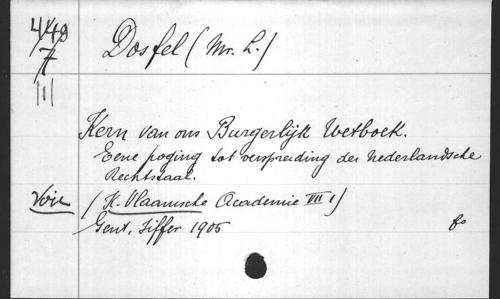 449
7
III
Dosfel (Mr. L.)
Kern van ons Burgerlijk Wetboek.
Eene poging tot verspreiding der Nederlandsche
Rechtstaal.
Voir (K. Vlaamsche Academie VII 1)
Gent, Siffer 1905